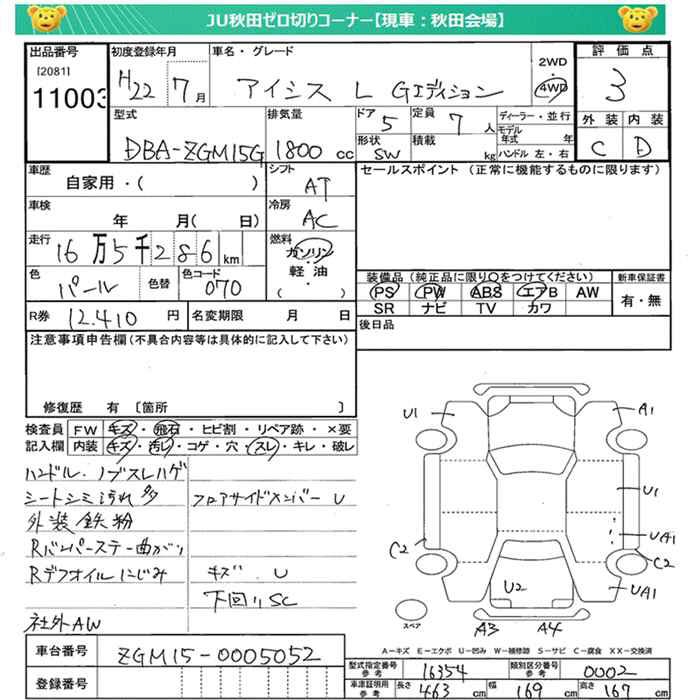 JU秋田ゼロ切りコーナー【現車：秋田会場】
出品番号 初度登録年月 車名・グレード 2WD ・ 4WD 評価点
[2081] 11003 H22 7月 アイシス L Gエディション 3
型式 排気量 ドア 5 定員 7人 ディーラー・並行 外装 内装
DBA-ZGM15G 1800cc 形状 SW 積載 kg モデル年式 年 ハンドル 左・右 C D
車歴 自家用・( ) シフト AT セールスポイント（正常に機能するものに限ります）
車検 年 月( 日) 冷房 AC
走行 16万5千286km 燃料 ガソリン・軽油・( )
色 パール 色替 色コード 070
装備品（純正品に限り○をつけてください） 新車保証書
PS PW ABS エアB AW 有・無
SR ナビ TV カワ
R券 12,410円 名変期限 月 日 後日品
注意事項申告欄（不具合内容等は具体的に記入して下さい）
修復歴 有 〔箇所 〕
検査員記入欄 FW キズ・飛石・ヒビ割・リペア跡・×要
内装 キズ・汚レ・コゲ・穴・スレ・キレ・破レ
ハンドル・ノブスレハゲ
シートシミ汚れ多 フロアサイドメンバー U
外装鉄粉
Rバンパーステー曲がり
Rデフオイルにじみ キズ U
下回りSC
社外AW
U1 A1
U1
UA1
C2 C2
UA1
U2
スペア A3 A4
A－キズ E－エクボ U－凹み W－補修跡 S－サビ C－腐食 XX－交換済
車台番号 ZGM15-0005052
登録番号
型式指定番号 参考 16354 類別区分番号 参考 0002
車庫証明用 参考 長さ 463 幅 169 高さ 167